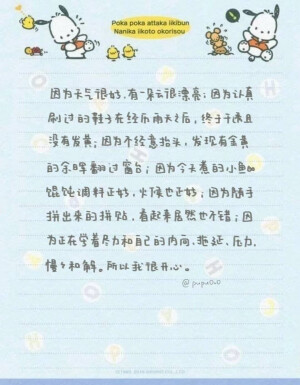 Poka poka attaka iikibun
Nanika iikoto okorisou
因为天气很好,有一朵云很漂亮;因为认真
刷过的鞋子在经历雨天之后,终于干透且
没有发黄;因为不经意抬头,发现有金黄
的余晖翻过窗台;因为今天煮的小鱼
馄饨调料正好,火候也正好;因为随手
拼出来的拼贴,看起来居然也不错;因
为正在学着尽力和自己的内向、拖延、压力,
慢慢和解。所以我很开心。